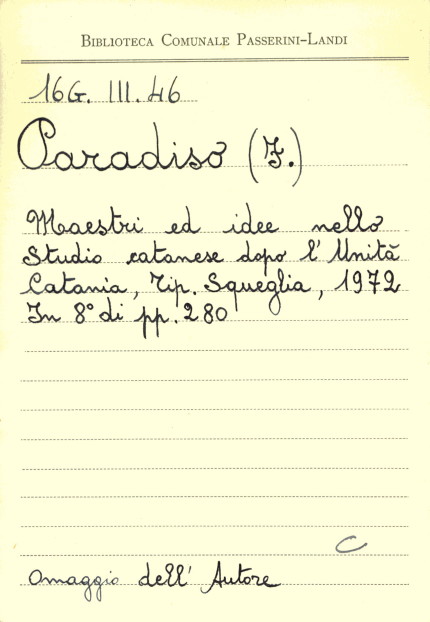 BIBLIOTECA COMUNALE PASSERINI-LANDI
16G. III. 46
Paradiso (F.)
Maestri ed idee nello
Studio catanese dopo l'Unità
Catania, Tip. Squeglia, 1972
In 8° di pp. 280
C
Omaggio dell'Autore